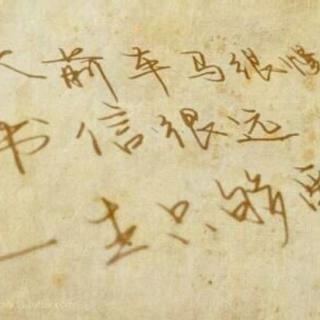 前车马很慢
书信很远
一生只够